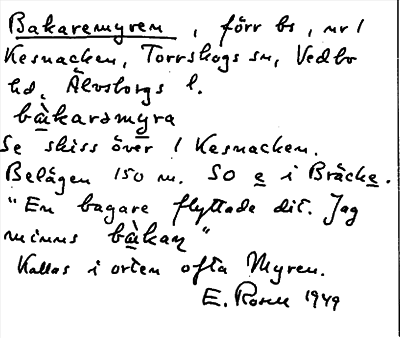 Bakaremyren, förr bs, nr 1
Kesnacken, Torrskogs sn, Vedbo
hd, Älvsborgs l.
bàkarəmyra
Se skiss över 1 Kesnacken.
Belägen 150 m. SO e i Bräcke.
"En bagare flyttade dit. Jag
minns bàkaṇ"
Kallas i orten ofta Myren.
E. Rosell 1949